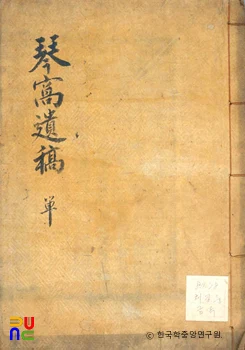 琴窩遺稿
單
ⓒ 한국학중앙연구원.